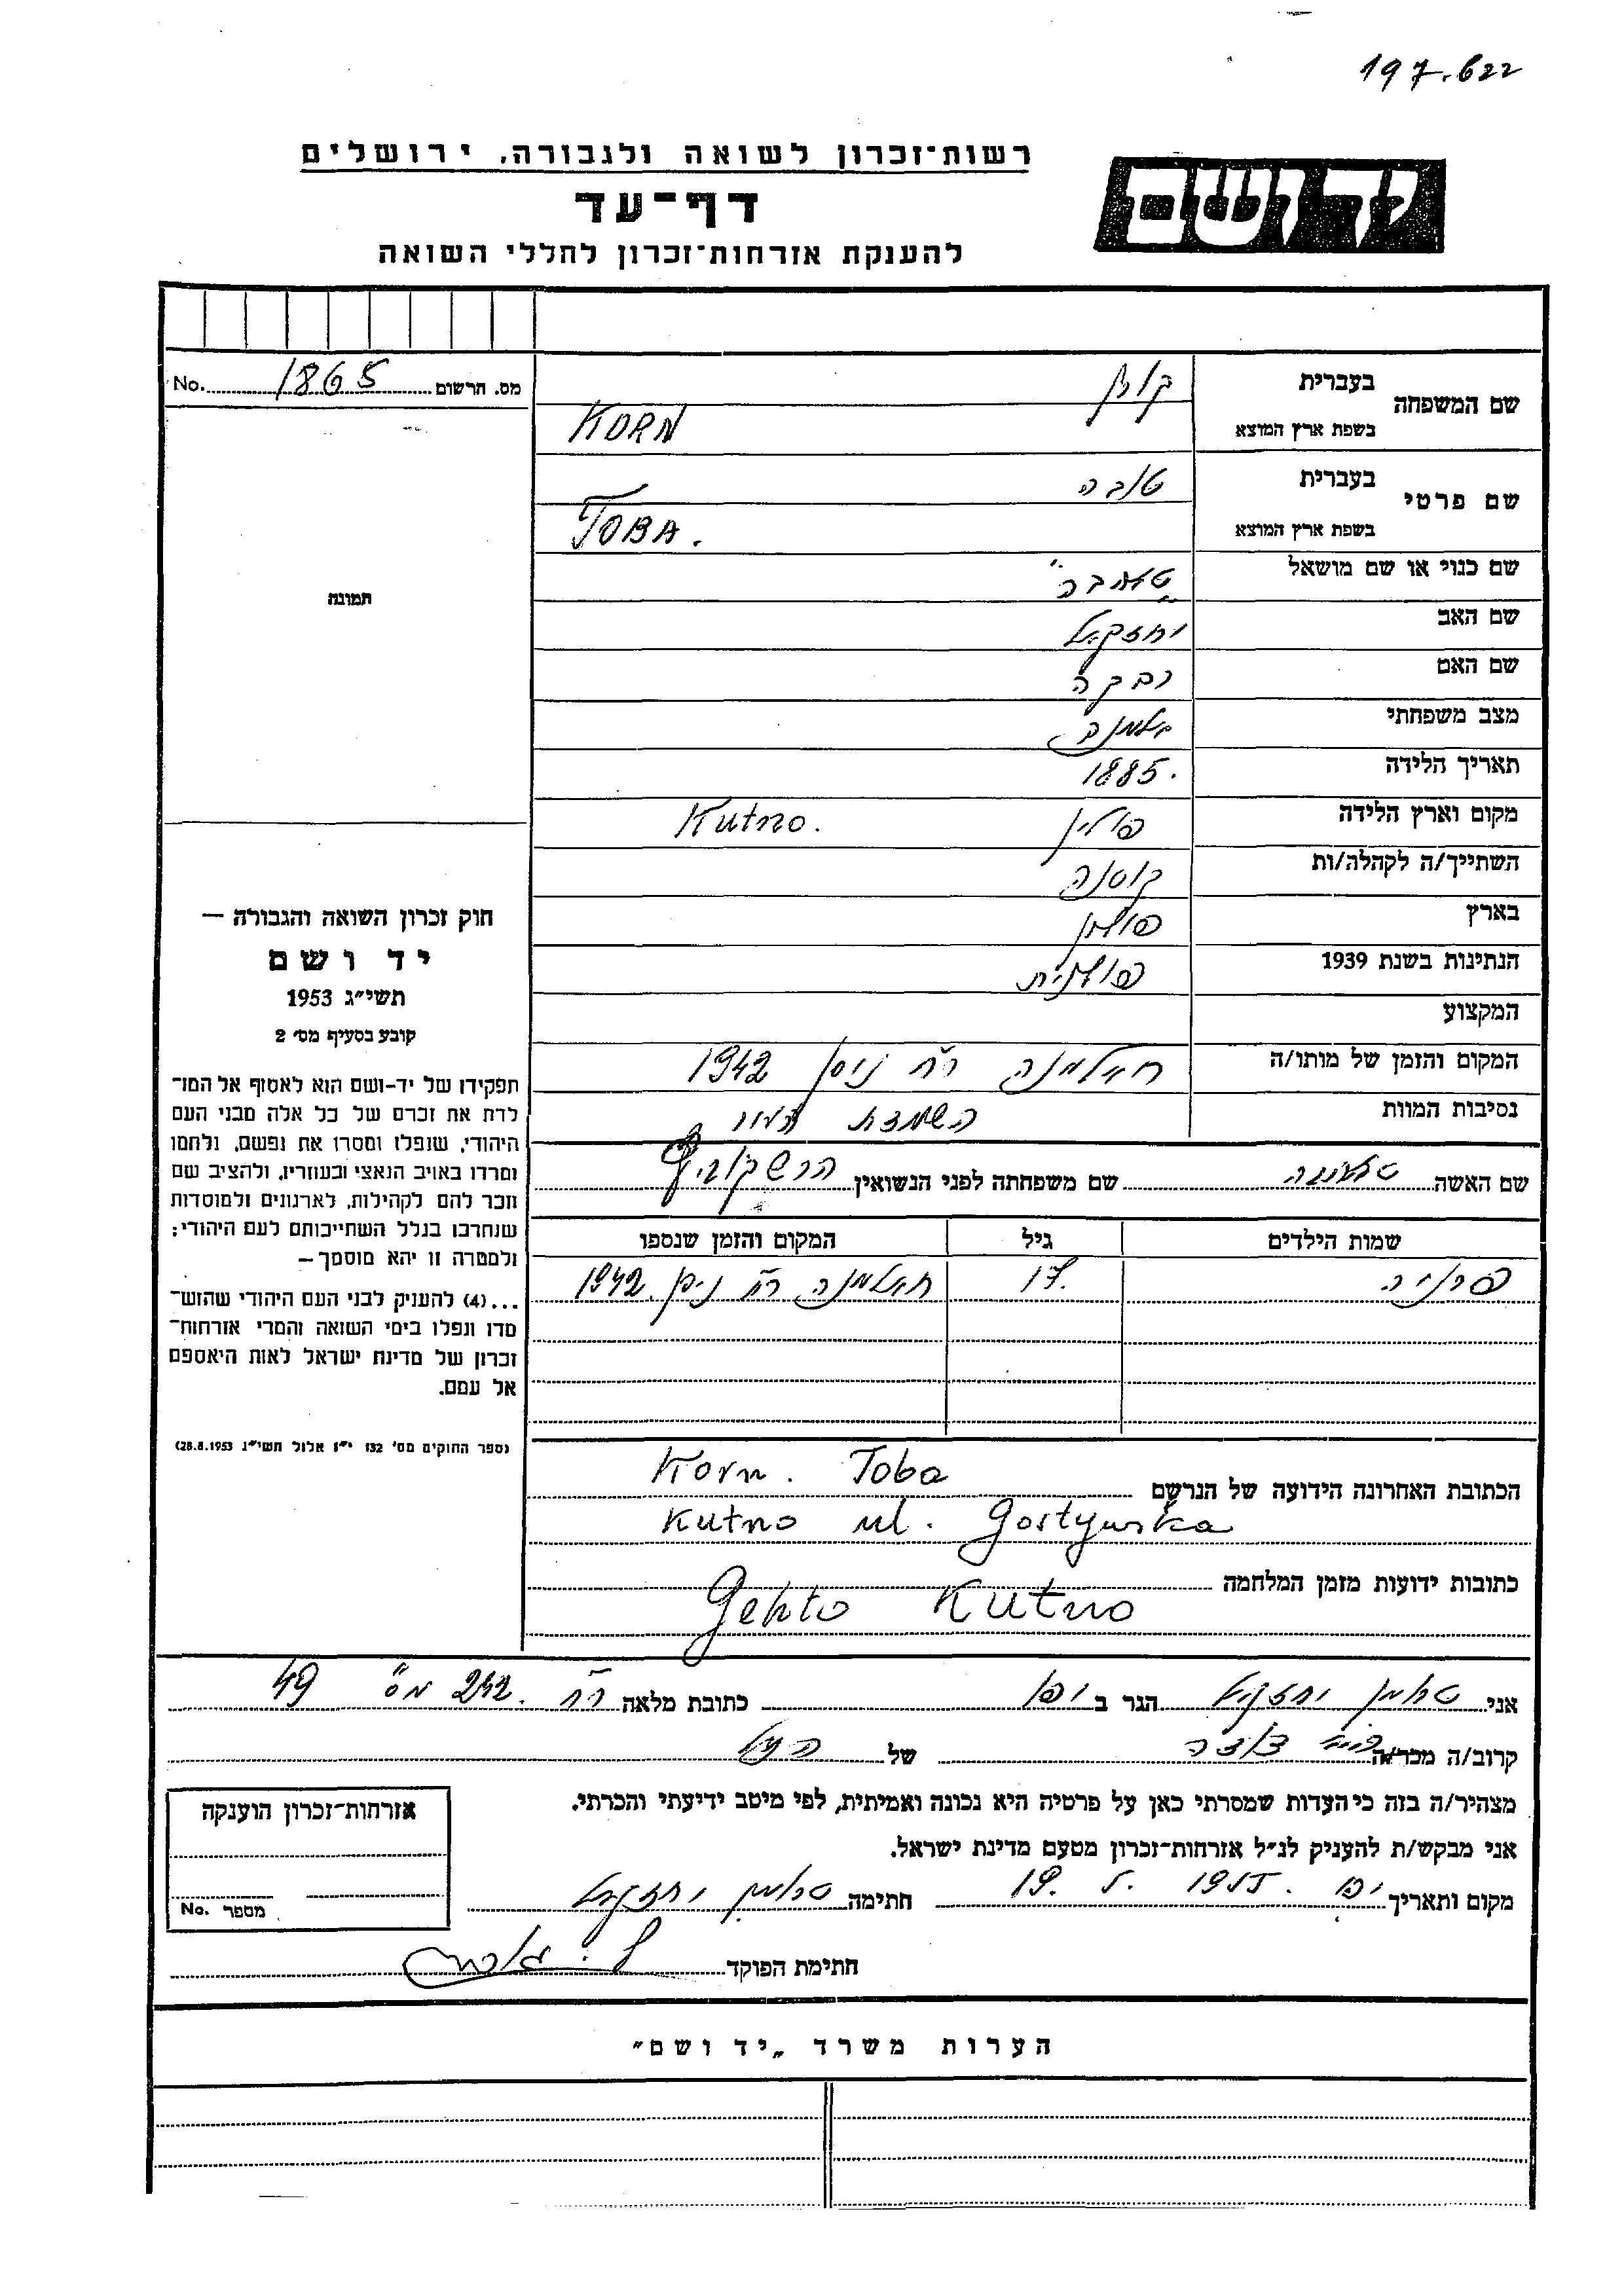 197.622
רשות־זכרון לשואה ולגבורה, ירושלים
יד ושם
דף־עד
להענקת אזרחות־זכרון לחללי השואה
מס. הרשום 1865 No.
שם המשפחה בעברית קורן
בשפת ארץ המוצא KORN
שם פרטי בעברית טובה
בשפת ארץ המוצא TOBA.
שם כנוי או שם מושאל
שם האב יחזקאל
שם האם רבקה
מצב משפחתי אלמנה
תאריך הלידה 1885.
מקום וארץ הלידה פולין Kutno.
השתייך/ה לקהלה/ות קוטנה
בארץ פולין
הנתינות בשנת 1939 פולנית
המקצוע
המקום והזמן של מותו/ה חלמנה ר״ח ניסן 1942
נסיבות המוות השמדת
שם האשה שם משפחתה לפני הנשואין הרשקוביץ
שמות הילדים גיל המקום והזמן שנספו
17. חלמנה ר״ח ניסן 1942.
הכתובת האחרונה הידועה של הנרשם Korn. Toba
Kutno ul. Gostynska
כתובות ידועות מזמן המלחמה
Gehto Kutno
תמונה
חוק זכרון השואה והגבורה —
יד ושם
תשי״ג 1953
קובע בסעיף מס׳ 2
תפקידו של יד-ושם הוא לאסוף אל המו־
לדת את זכרם של כל אלה מבני העם
היהודי, שנפלו ומסרו את נפשם, נלחמו
ומרדו באויב הנאצי ובעוזריו, ולהציב שם
וזכר להם לקהילות, לארגונים ולמוסדות
שנחרבו בגלל השתייכותם לעם היהודי;
ולמטרה זו יהא מוסמך —
...(4) להענק לבני העם היהודי שהוש־
מדו ונפלו בימי השואה והמרי אזרחות־
זכרון של מדינת ישראל לאות היאספם
אל עמם.
(ספר החוקים מס׳ 132 י״ז אלול תשי״ג 28.8.1953)
אני יחזקאל הגר ב יפו כתובת מלאה רח. 242 מס׳ 49
קרוב/ה מכר/ה של הנ״ל
מצהיר/ה בזה כי העדות שמסרתי כאן על פרטיה היא נכונה ואמיתית, לפי מיטב ידיעתי והכרתי.
אני מבקש/ת להעניק לנ״ל אזרחות־זכרון מטעם מדינת ישראל.
מקום ותאריך יפו. חתימה יחזקאל
חתימת הפוקד
אזרחות־זכרון הוענקה
מספר No.
הערות משרד „יד ושם״